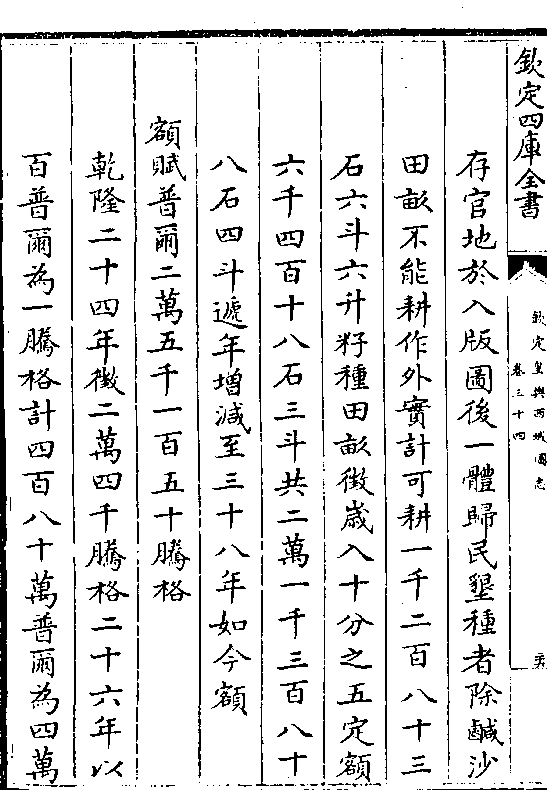 欽定四庫全書
欽定皇輿西域圖志
卷三十四
存官地於入版圖後一體歸民墾種者除鹹沙
田畝不能耕作外實計可耕一千二百八十三
石六斗六升籽種田畝徵歳入十分之五定額
六千四百十八石三斗共二萬一千三百八十
八石四斗遞年增減至三十八年如今額
額賦普爾二萬五千一百五十騰格
乾隆二十四年徵二萬四千騰格二十六年以
百普爾為一騰格計四百八十萬普爾為四萬